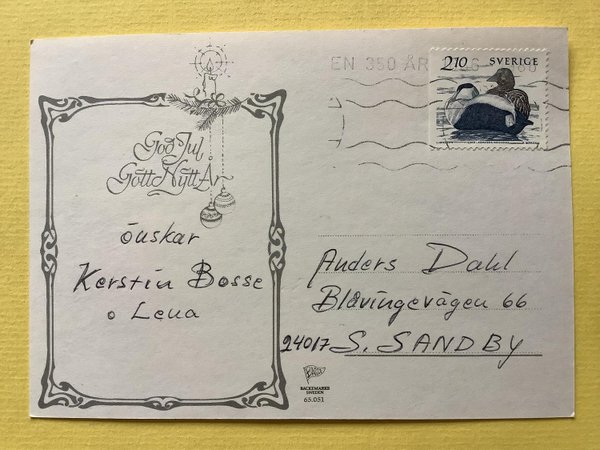 God Jul
Gott Nytt År
önskar
Kerstin Bosse
o Lena
EN 350 ÅR
2.10 SVERIGE
Anders Dahl
Blåvingevägen 66
24017 S. SANDBY
BACKEMARKS
SWEDEN
65.051